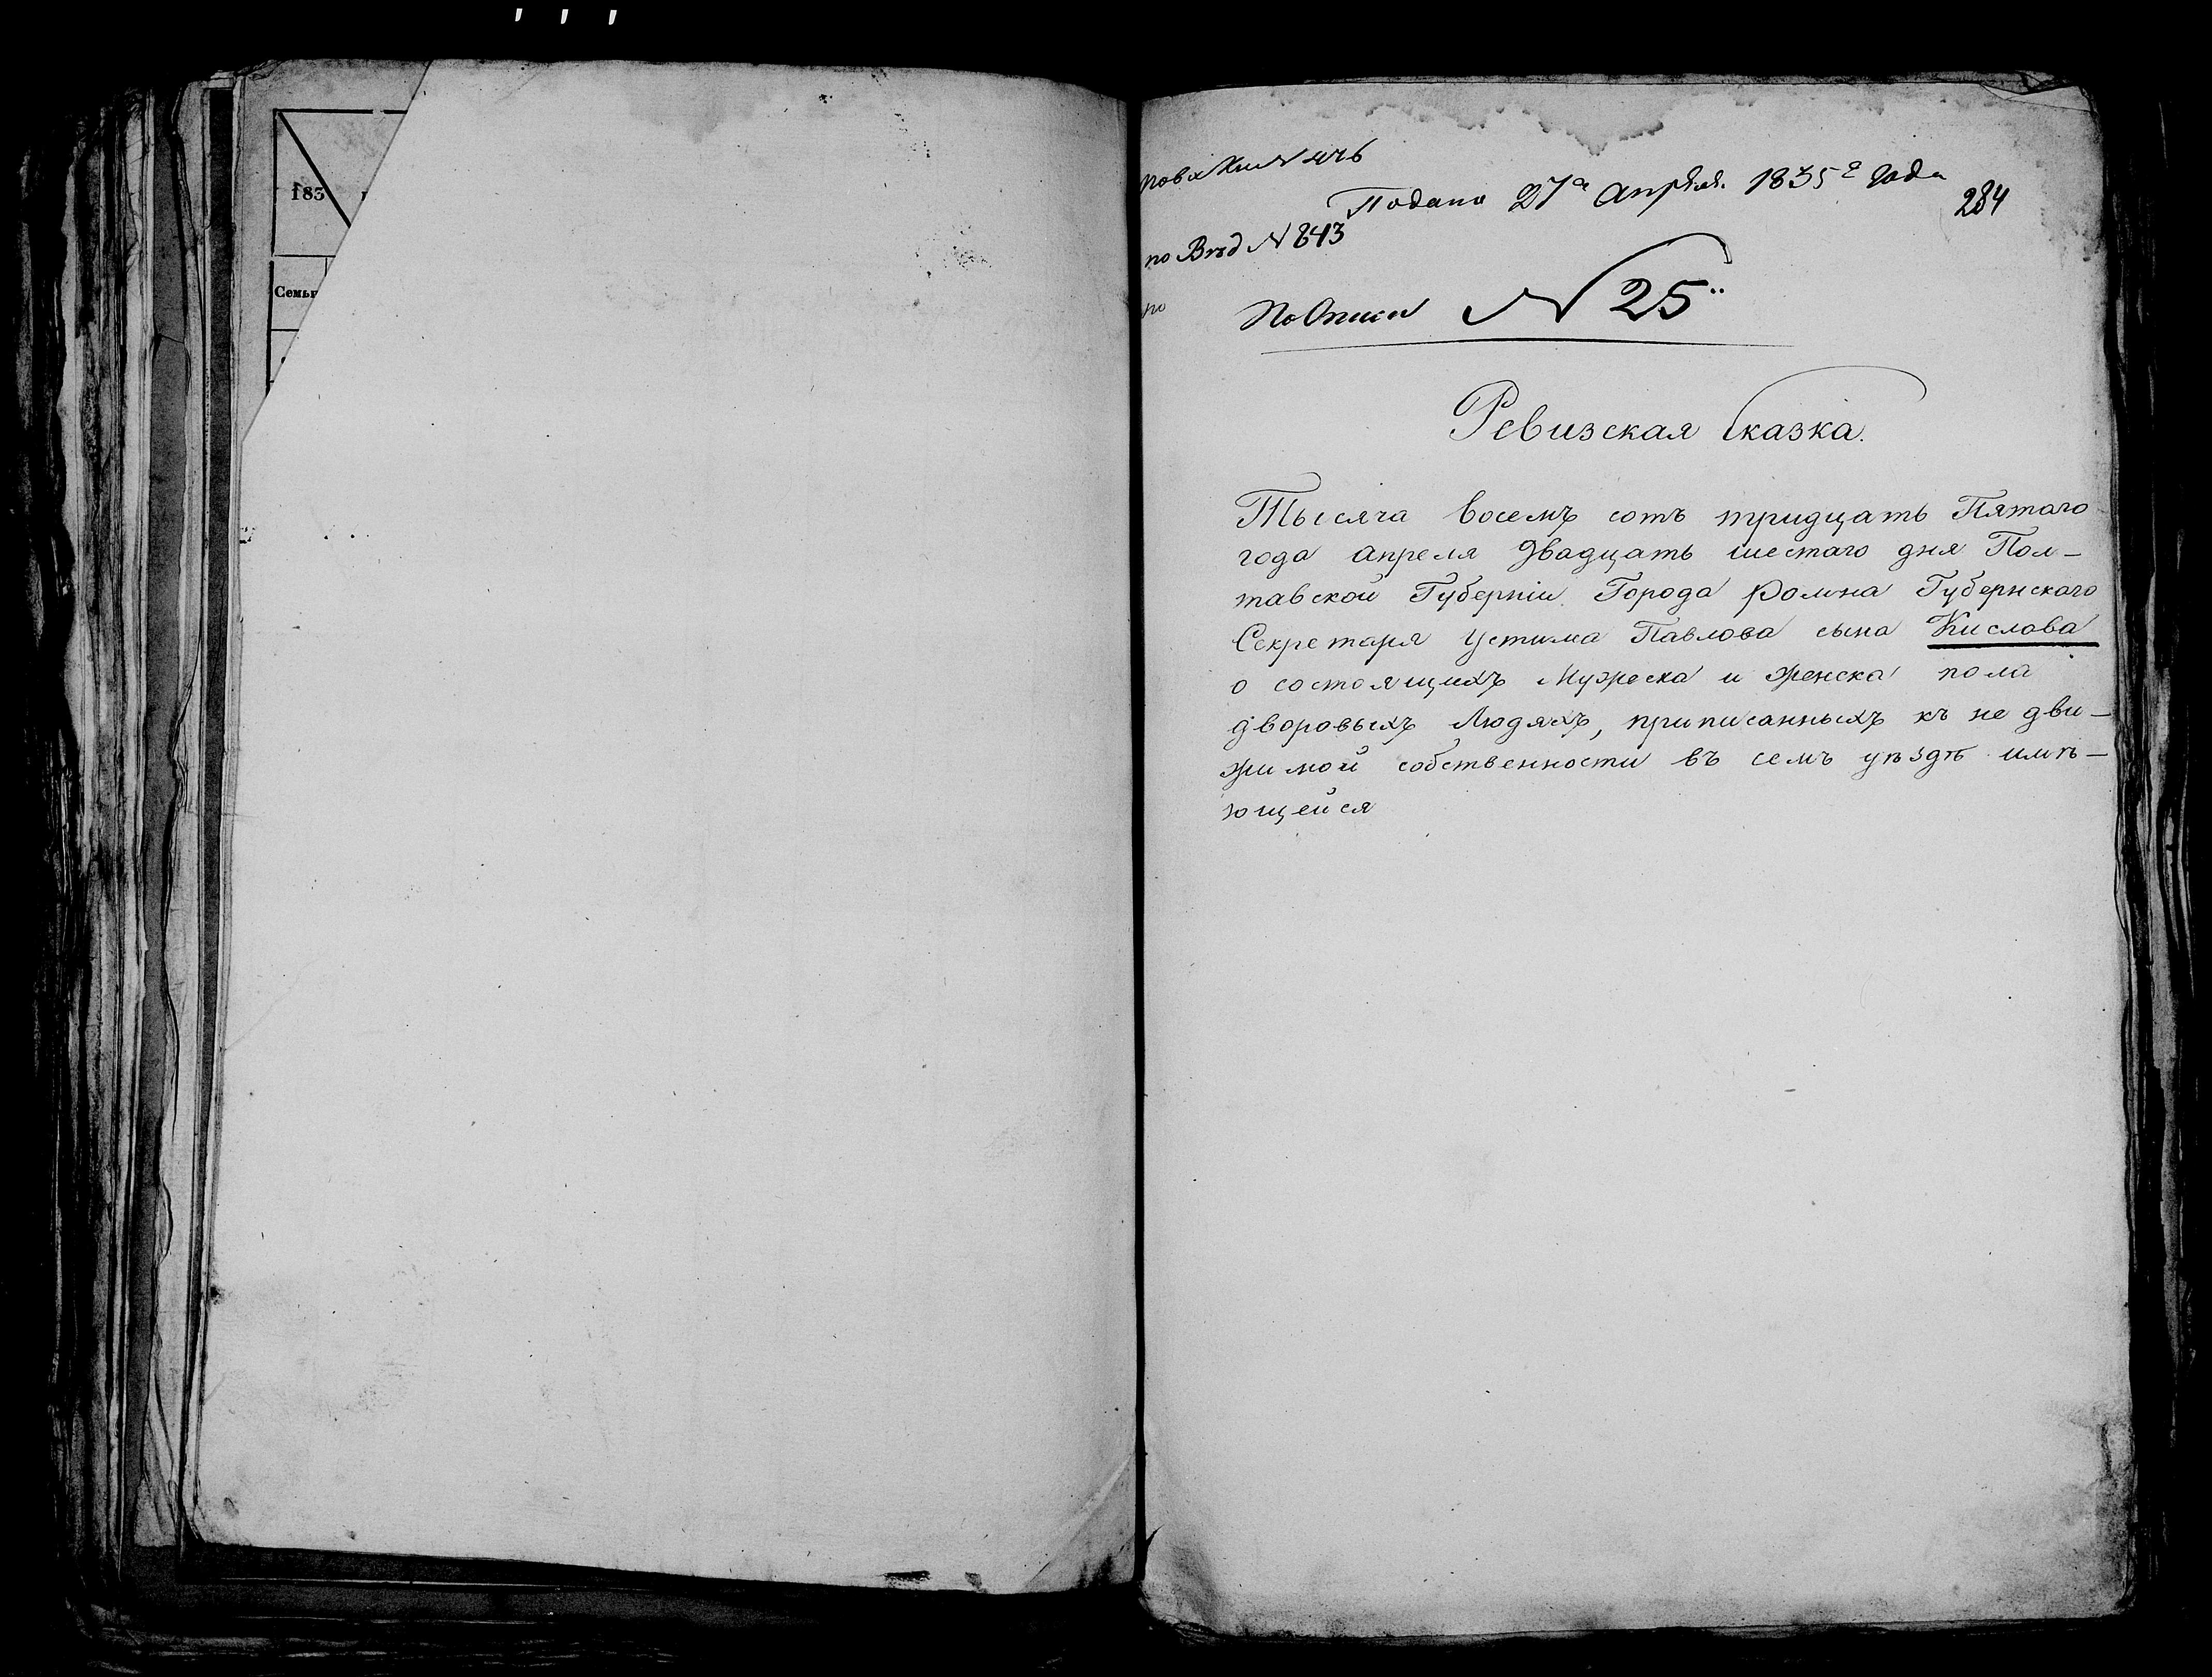 183
Семьи
Подана 27го апреля 1835го года
284
по Вѣд № 843
по
По Описи № 25
Ревизская Сказка.
Тысяча восемъ сотъ тридцать Пятаго
года апреля двадцать шестаго дня Пол-
тавской Губерніи Города Ромна Губернскаго
Секретаря Устима Павлова сына Кислова
о состоящихъ Мужеска и женска пола
дворовыхъ Людяхъ, приписанныхъ къ не дви-
жимой собственности въ семъ уѣздѣ имѣ-
ющейся